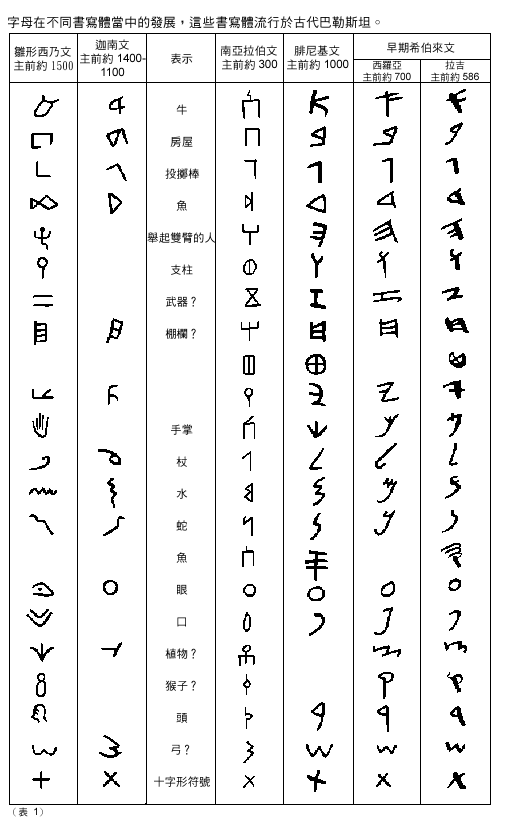 字母在不同書寫體當中的發展，這些書寫體流行於古代巴勒斯坦。
雛形西乃文 主前約 1500
迦南文 主前約 1400-1100
表示
南亞拉伯文 主前約 300
腓尼基文 主前約 1000
早期希伯來文
西羅亞 主前約 700
拉吉 主前約 586
牛
房屋
投擲棒
魚
舉起雙臂的人
支柱
武器？
棚欄？
手掌
杖
水
蛇
魚
眼
口
植物？
猴子？
頭
弓？
十字形符號
（表 1）